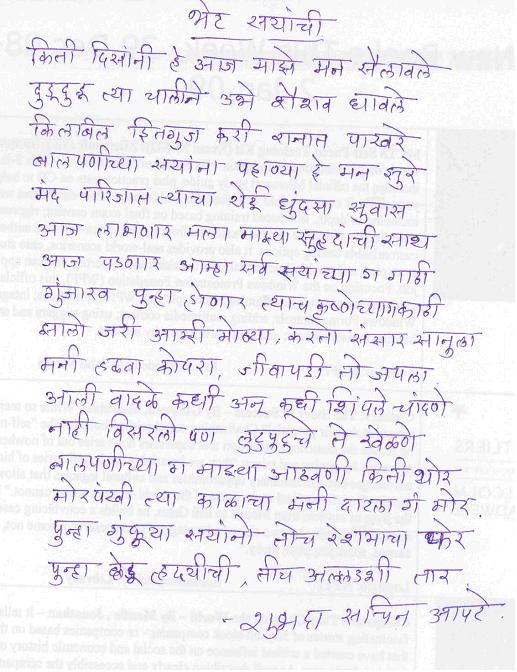 भेट सयांची
किती दिसांनी हे आज माझे मन सैलावले
दुडूदुडू त्या चालीने उभे शैशव धावले
किलबिल हितगुज करी रानात पाखरे
बालपणीच्या सयांना पहाण्या हे मन झुरे
मंद पारिजात त्याचा येई धुंदसा सुवास
आज लाभणार मला माझ्या सुहृदांची साथ
आज पडणार आम्हा सर्व सयांच्या ग गाठी
गुंजारव पुन्हा होणार त्याच कृष्णेच्या ग काठी
झालो जरी आम्ही मोठ्या, करतो संसार सानुला
मनी हळवा कोपरा, जीवापाडी तो जपला
आली वादळे कधी अन् कधी शिंपले चांदणे
नाही विसरलो पण लुटुपुटुचे ते खेळणे
बालपणीच्या ग माझ्या आठवणी किती थोर
मोरपंखी त्या काळाचा मनी दाटला गं मोर
पुन्हा गुंफूया सयांनो तोच रेशमाचा फेर
पुन्हा छेडू हृदयीची, तीच अल्लडशी तार
- शुभदा सचिन आपटे.